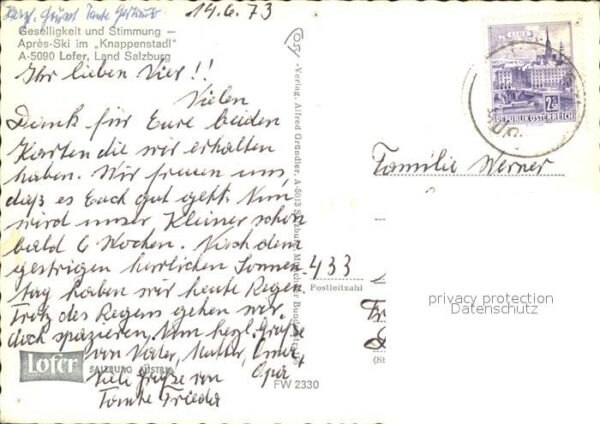 Herzl. Grüße Tante Gertrude
19.6.73
Geselligkeit und Stimmung –
Après-Ski im „Knappenstadl"
A-5090 Lofer, Land Salzburg
Ihr lieben Vier!!
Vielen
Dank für Eure beiden
Karten die wir erhalten
haben. Wir freuen uns,
daß es Euch gut geht. Nun
wird unser Kleiner schon
bald 6 Wochen. Nach dem
gestrigen herrlichen Sonnen
tag haben wir heute Regen
trotz des Regens gehen wir
doch spazieren. Nun herzl. Grüße
von Vater, Mutter, Oma +
Opa
Viele Grüße von
Tante Frieda
Lofer
SALZBURG AUSTRIA
FW 2330
Verlag Alfred Gründler, A-5013 Salzburg
LINZ
2.50
REPUBLIK ÖSTERREICH
Familie Werner
433
Postleitzahl
privacy protection
Datenschutz
(St